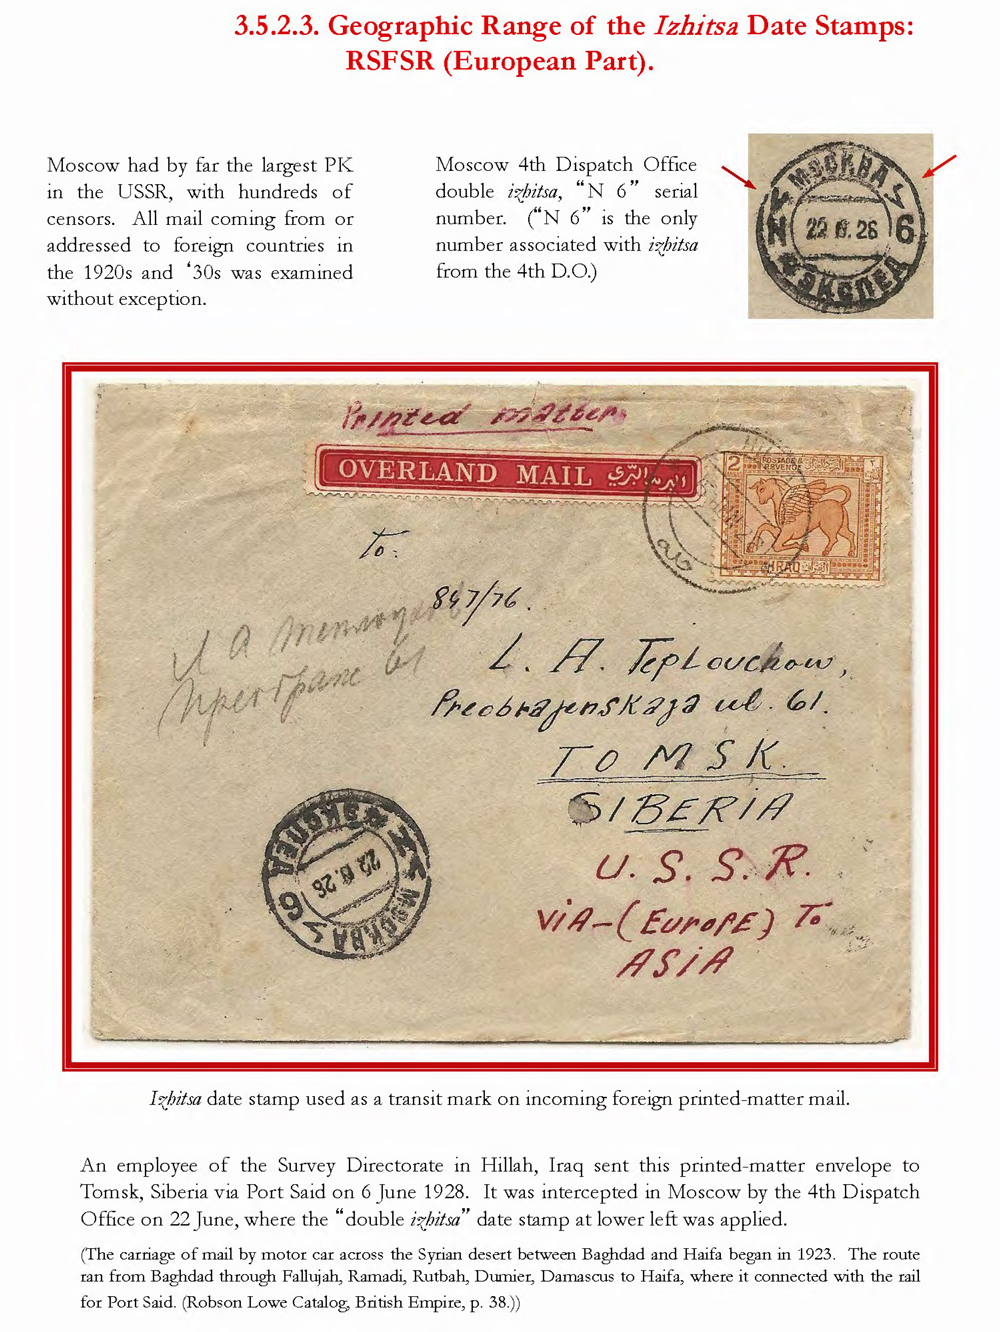 3.5.2.3. Geographic Range of the Izhitsa Date Stamps:
RSFSR (European Part).
Moscow had by far the largest PK
in the USSR, with hundreds of
censors. All mail coming from or
addressed to foreign countries in
the 1920s and ‘30s was examined
without exception.
Moscow 4th Dispatch Office
double izhitsa, “N 6” serial
number. (“N 6” is the only
number associated with izhitsa
from the 4th D.O.)
МОСКВА
N 22 6. 26 6
4 ЭКСПЕД
Printed matter
OVERLAND MAIL البريد البري
2 POSTAGE & REVENUE
IRAQ
حلة
To:
847/76.
L. A. Teplouchow,
Preobrajenskaja ul. 61.
TOMSK.
SIBERIA
U. S. S. R.
VIA-(EUROPE) To
ASIA
61
4 ЭКСПЕД
6 22 6. 26 N
МОСКВА
Izhitsa date stamp used as a transit mark on incoming foreign printed-matter mail.
An employee of the Survey Directorate in Hillah, Iraq sent this printed-matter envelope to
Tomsk, Siberia via Port Said on 6 June 1928. It was intercepted in Moscow by the 4th Dispatch
Office on 22 June, where the “double izhitsa” date stamp at lower left was applied.
(The carriage of mail by motor car across the Syrian desert between Baghdad and Haifa began in 1923. The route
ran from Baghdad through Fallujah, Ramadi, Rutbah, Dumier, Damascus to Haifa, where it connected with the rail
for Port Said. (Robson Lowe Catalog, British Empire, p. 38.))